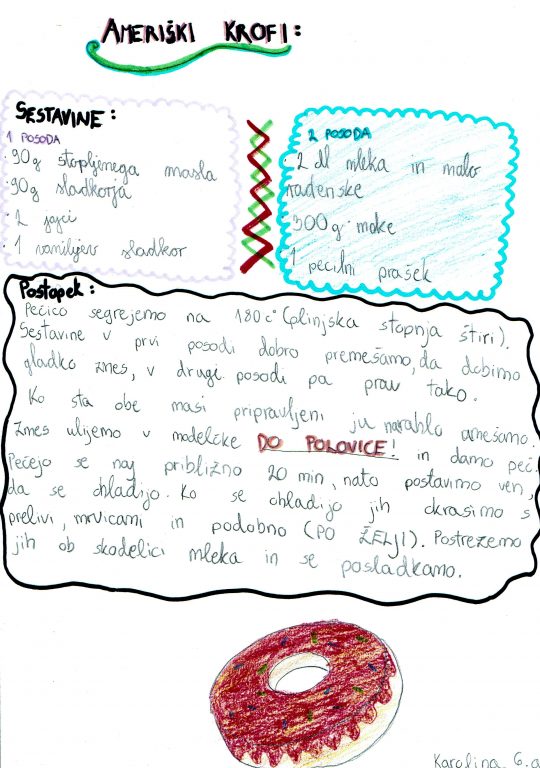 AMERIŠKI KROFI:
SESTAVINE:
1 POSODA
· 90g stopljenega masla
· 90g sladkorja
· 2 jajci
· 1 vaniljev sladkor
2 POSODA
· 2 dl mleka in malo
radenske
300g moke
1 pecilni prašek
Postopek:
Pečico segrejemo na 180 c° (plinjska stopnja štiri).
Sestavine v prvi posodi dobro premešamo, da dobimo
gladko zmes, v drugi posodi pa prav tako.
Ko sta obe masi pripravljeni ju narahlo umešamo.
Zmes ulijemo v modelčke DO POLOVICE! in damo peč.
Pečejo se naj približno 20 min, nato postavimo ven,
da se ohladijo. Ko se ohladijo jih okrasimo s
prelivi, mrvicami in podobno (PO ŽELJI). Postrežemo
jih ob skodelici mleka in se posladkamo.
Karolina 6.a